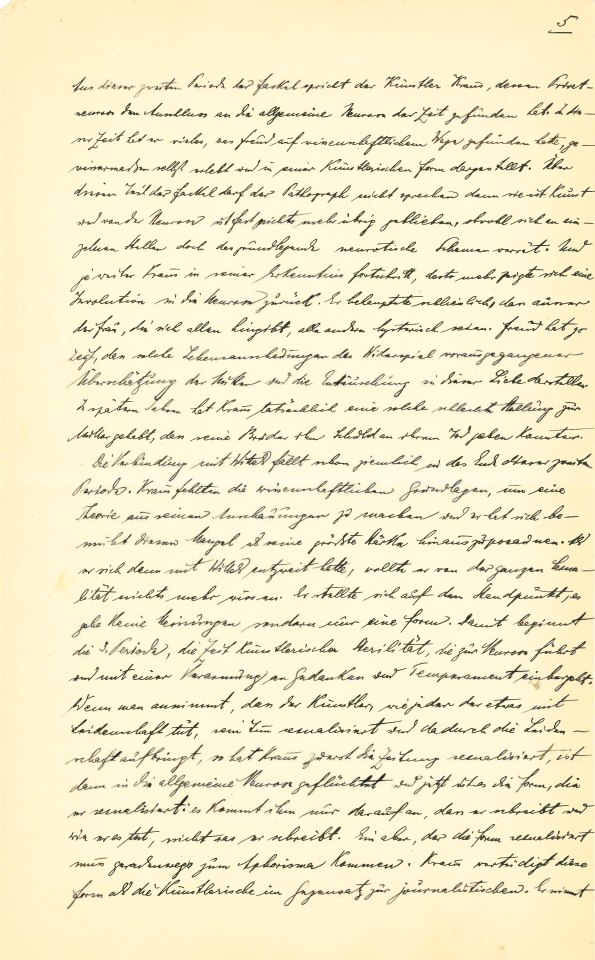 5
Aus dieser zweiten Periode der Fackel spricht der Künstler Kraus, dessen Privat-
neurose den Anschluss an die allgemeine Neurose der Zeit gefunden hat. In die-
ser Zeit hat er vieles, was Freud auf wissenschaftlichem Wege gefunden hatte, ge-
wissermassen selbst erlebt und in seiner künstlerischen Form dargestellt. Über
diesen Teil der Fackel darf der Pathograph nicht sprechen denn sie ist Kunst
und von der Neurose ist fast nichts mehr übrig geblieben, obwohl sich an ein-
zelnen Stellen doch das grundlegende neurotische Schema verrät. Und
je weiter Kraus in seiner Erkenntnis fortschritt, desto mehr zeigte sich eine
Involution in die Neurose zurück. Er behauptete schliesslich, dass ausser
der Frau, die sich allen hingibt, alle andern hysterisch seien. Freud hat ge-
zeigt, dass solche Lebensanschauungen das Widerspiel vorausgegangener
Überschätzung der Mutter und die Enttäuschung in dieser Liebe darstellen.
In spätern Jahren hat Kraus tatsächlich eine solche schlechte Stellung zur
Mutter gehabt, dass seine Brüder ihm Schuld an ihrem Tod geben konnten.
Die Verbindung mit Wittels fällt schon ziemlich in das Ende dieser zweiten
Periode. Kraus fehlten die wissenschaftlichen Grundlagen, um eine
Theorie aus seinen Anschauungen zu machen und er hat sich be-
müht diesen Mangel als seine grösste Stärke hinauszuposaunen. Als
er sich dann mit Wittels entzweit hatte, wollte er von der ganzen Sexua-
lität nichts mehr wissen. Er stellte sich auf den Standpunkt, es
gebe keine Meinungen sondern nur eine Form. Damit beginnt
die 3. Periode, die Zeit künstlerischer Sterilität, die zur Neurose führt
und mit einer Verarmung an Gedanken und Temperament einhergeht.
Wenn man annimmt, dass der Künstler, wie jeder der etwas mit
Leidenschaft tut, sein Tun sexualisiert und dadurch die Leiden-
schaft aufbringt, so hat Kraus zuerst die Zeitung sexualisiert, ist
dann in die allgemeine Neurose geflüchtet und jetzt ist es die Form, die
er sexualisiert: es kommt ihm nur darauf an, dass er schreibt und
wie er es tut, nicht was er schreibt. Ein aber, der die Form sexualisiert
muss geradenwegs zum Aphorisma kommen. Kraus verteidigt diese
Form als die künstlerische im Gegensatz zur journalistischen. Er nimmt